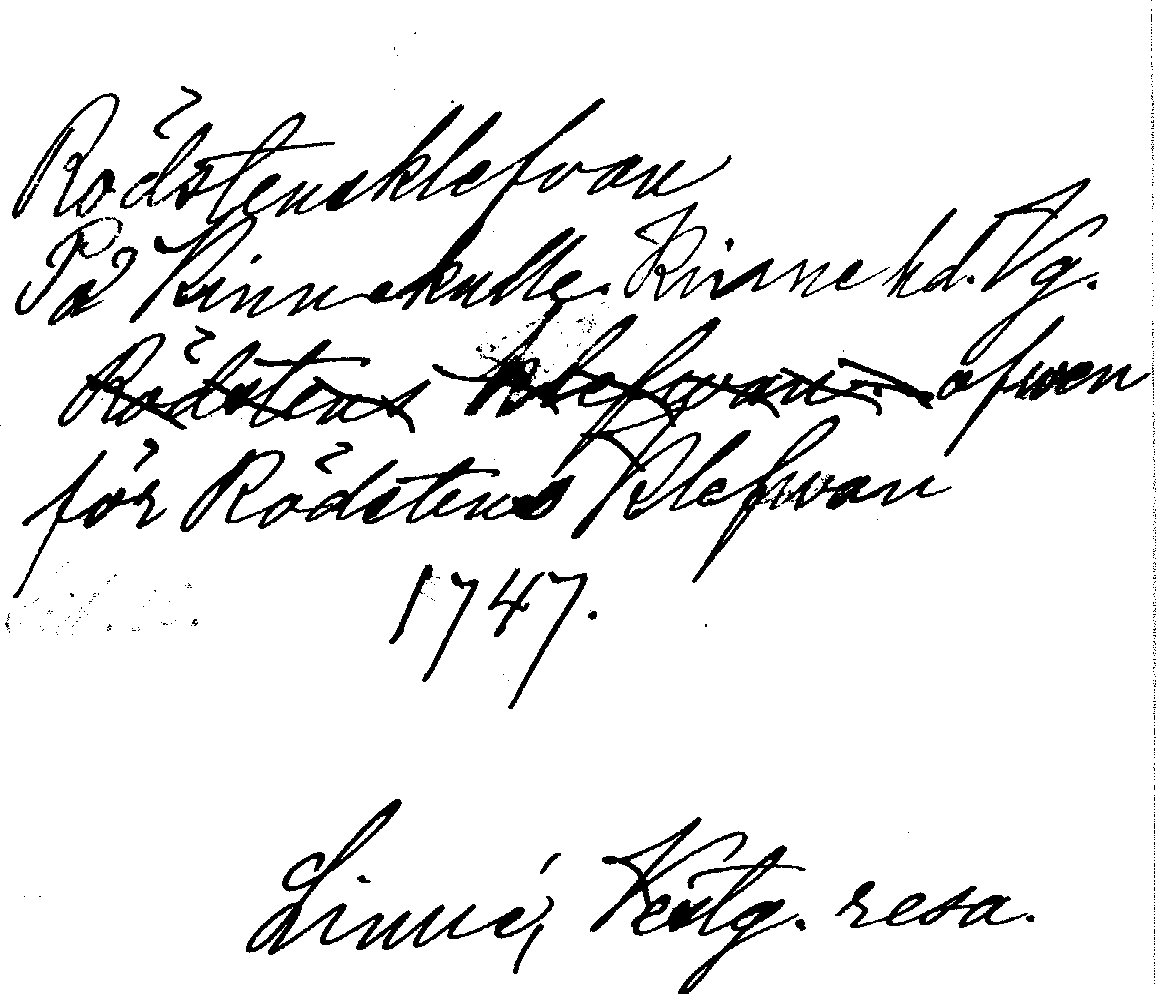 Rödstensklefvan
På Kinnekulle. Kinne hd. Vg.
Rödstens Klefvan ofwen
för Rödstens Klefwan
1747.
Linné, Vestg. resa.